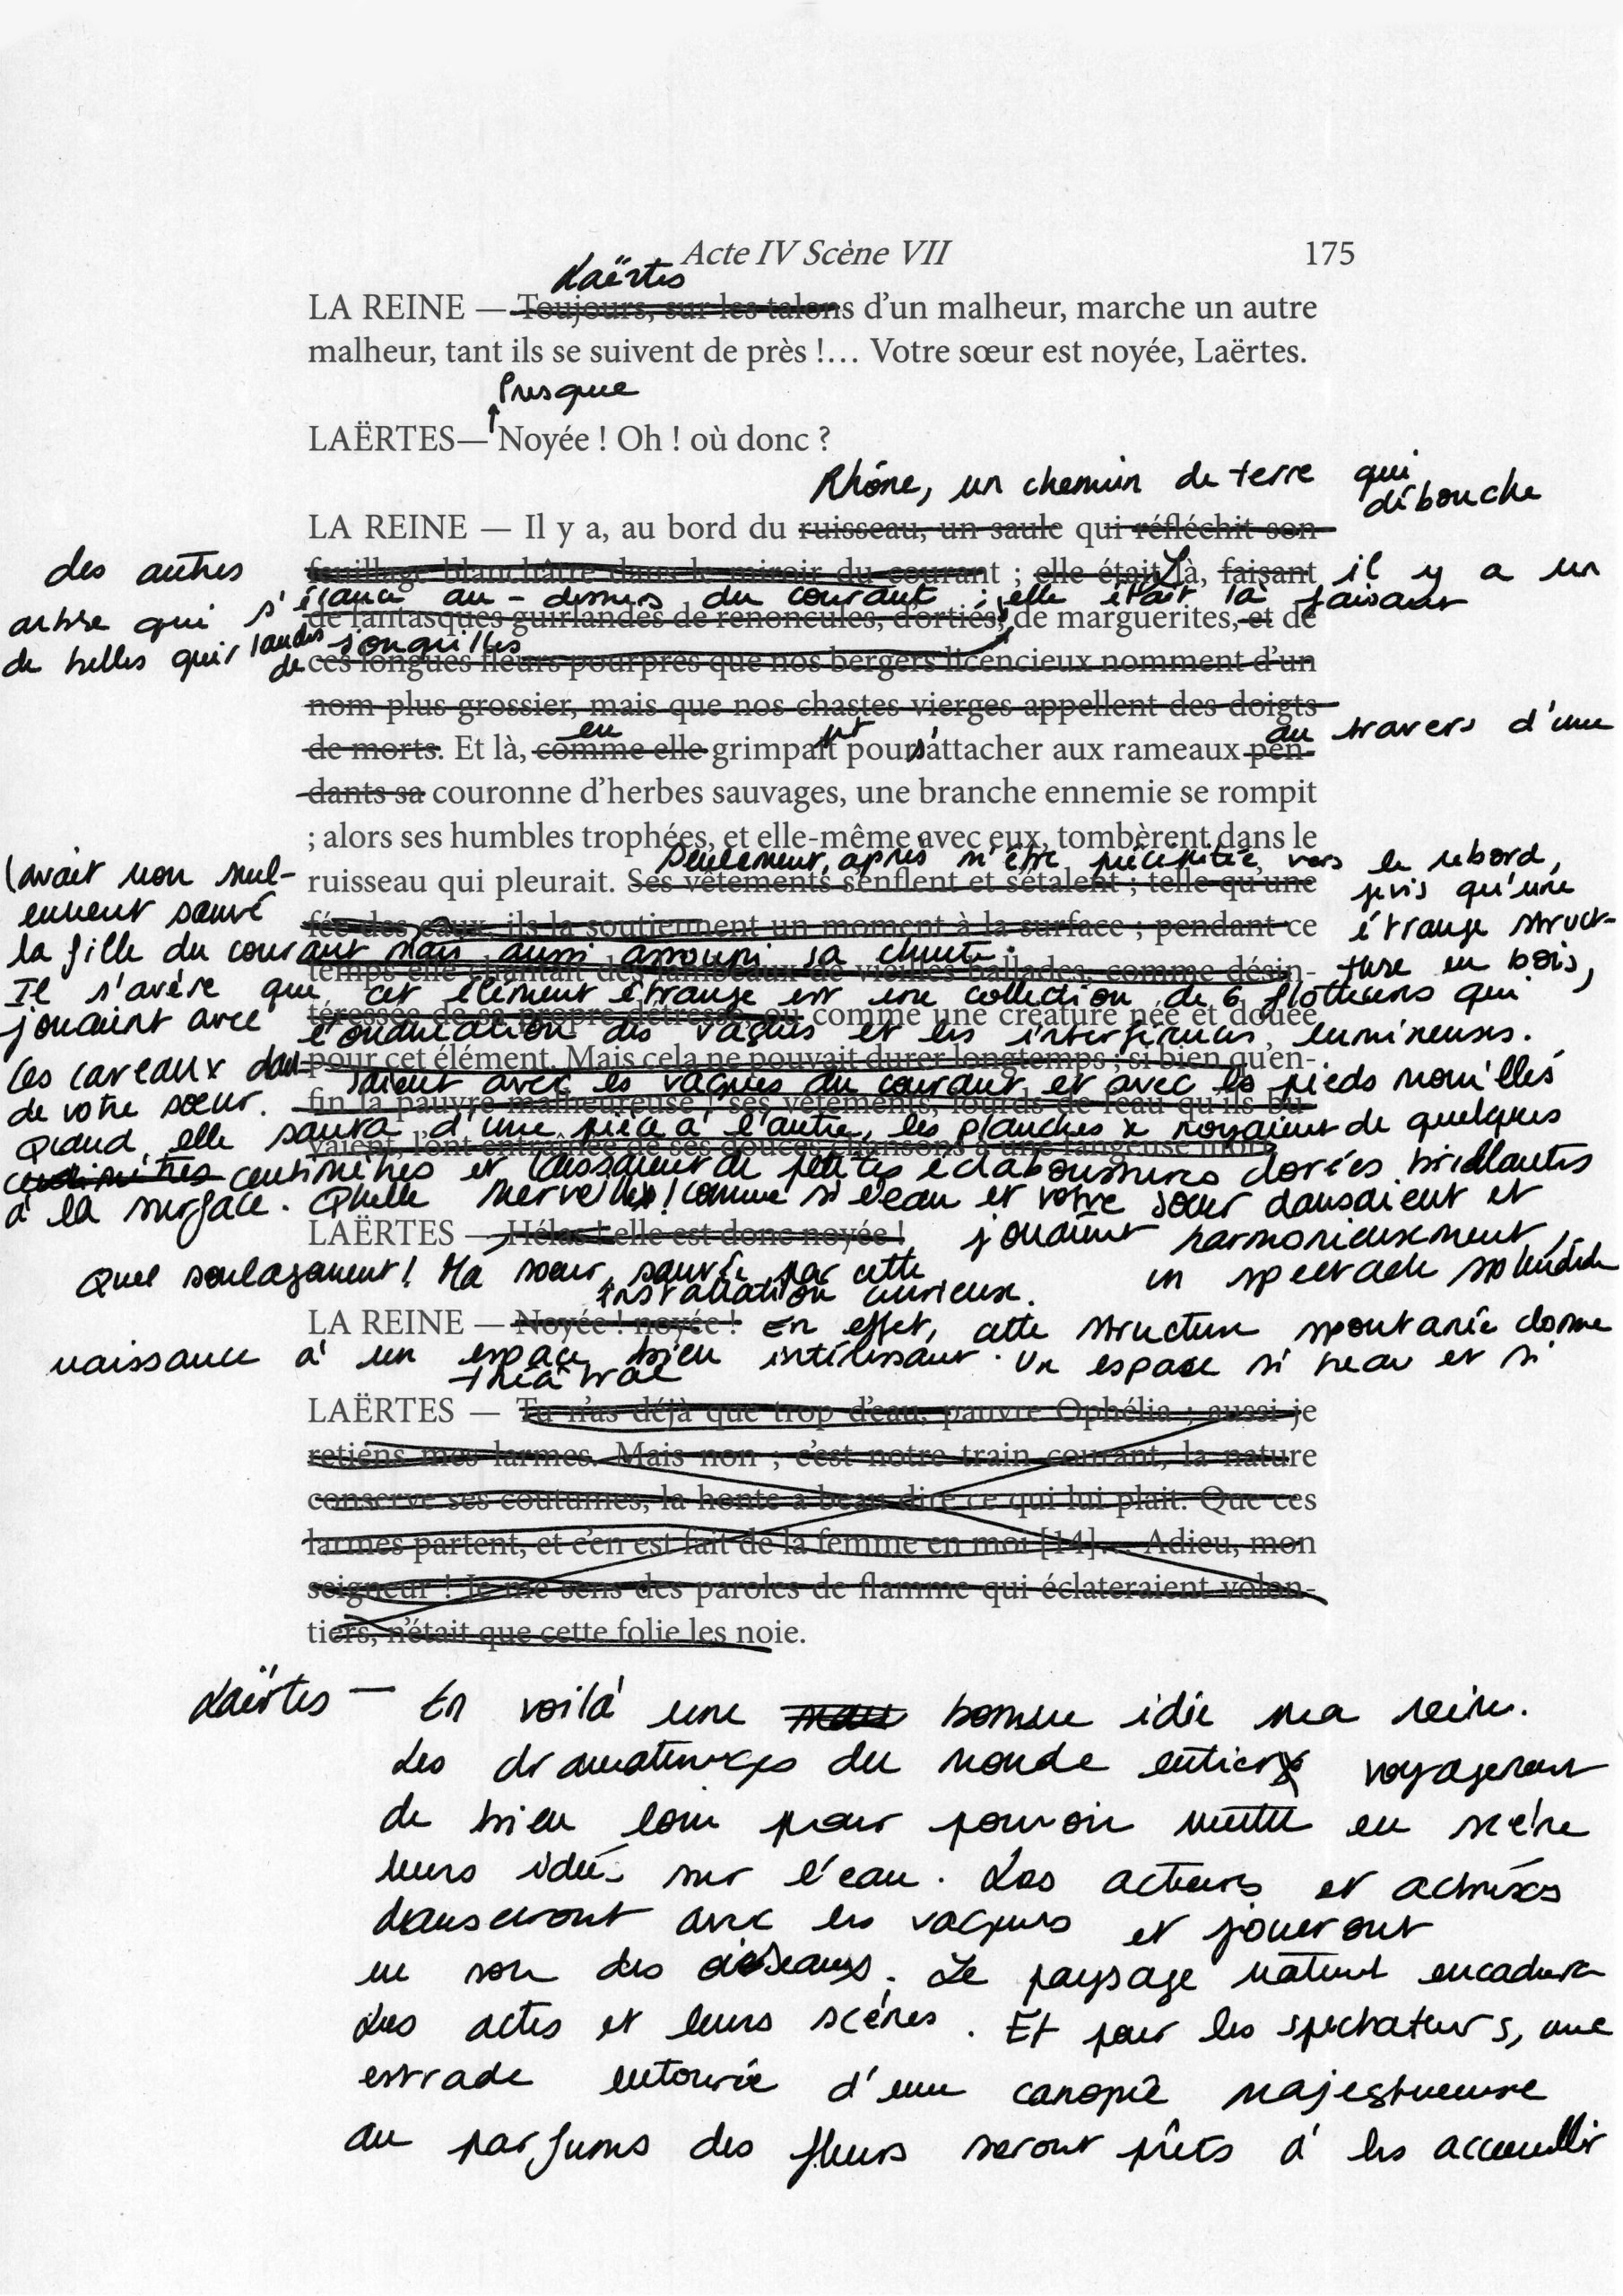 Acte IV Scène VII
175
Laërtes
LA REINE — Toujours, sur les talons d’un malheur, marche un autre
malheur, tant ils se suivent de près !… Votre sœur est noyée, Laërtes.
Presque
LAËRTES— Noyée ! Oh ! où donc ?
Rhône, un chemin de terre qui
débouche
LA REINE — Il y a, au bord du ruisseau, un saule qui réfléchit son
des autres
feuillage blanchâtre dans le miroir du courant ; elle était Là, faisant il y a un
arbre qui s'élance au-dessus du courant ; elle était là faisant
de fantasques guirlandes de renoncules, d’orties, de marguerites, et de
de belles guirlandes de jonquilles
ces longues fleurs pourpres que nos bergers licencieux nomment d’un
nom plus grossier, mais que nos chastes vierges appellent des doigts
en
au travers d'une
de morts. Et là, comme elle grimpait pour s'attacher aux rameaux pen-
dants sa couronne d’herbes sauvages, une branche ennemie se rompit
; alors ses humbles trophées, et elle-même avec eux, tombèrent dans le
Seulement, après m'être précipitée vers le rebord,
ruisseau qui pleurait. Ses vêtements s’enflent et s’étalent ; telle qu’une
je vis qu'une
l'avait non seul-
ement sauvé
fée des eaux, ils la soutiennent un moment à la surface ; pendant ce
étrange struct-
la fille du courant mais aussi amorti sa chute.
temps elle chantait des lambeaux de vieilles ballades, comme désin-
ture en bois,
Il s'avère que cet élément étrange est une collection de 6 flotteurs qui
téressée de sa propre détresse, ou comme une créature née et douée
jouaient avec l'ondulation des vagues et les interférences lumineuses.
pour cet élément. Mais cela ne pouvait durer longtemps ; si bien qu’en-
Les carreaux dansaient avec les vagues du courant et avec les pieds mouillés
fin la pauvre malheureuse ! ses vêtements, lourds de l’eau qu’ils bu-
de votre sœur.
Quand elle sauta d'une pièce à l'autre, les planches se noyaient de quelques
vaient, l’ont entraînée de ses douces chansons à une fangeuse mort.
centimètres centimètres et laissaient de petites éclaboussures dorées brillantes
à la surface. Quelle merveille ! comme si l'eau et votre sœur dansaient et
LAËRTES — Hélas ! elle est donc noyée !
jouaient harmonieusement,
un spectacle splendide
Quel soulagement ! Ma sœur, sauvée par cette
installation curieuse.
LA REINE — Noyée ! noyée ! En effet, cette structure spontanée donne
naissance à un espace bien intéressant. Un espace si beau et si
théâtral
LAËRTES — Tu n’as déjà que trop d’eau, pauvre Ophélia ; aussi je
retiens mes larmes. Mais non ; c’est notre train courant, la nature
conserve ses coutumes, la honte a beau dire ce qui lui plait. Que ces
larmes partent, et c’en est fait de la femme en moi [14]… Adieu, mon
seigneur ! Je me sens des paroles de flamme qui éclateraient volon-
tiers, n’était que cette folie les noie.
Laërtes — En voilà une bonne idée ma reine.
Les dramaturges du monde entier voyageront
de bien loin pour pouvoir mettre en scène
leurs idées sur l'eau. Les acteurs et actrices
danseront avec les vagues et joueront
au son des oiseaux. Le paysage naturel encadrera
Les actes et leurs scènes. Et pour les spectateurs, une
estrade entourée d'une canopée majestueuse
au parfums des fleurs seront prêts à les accueillir